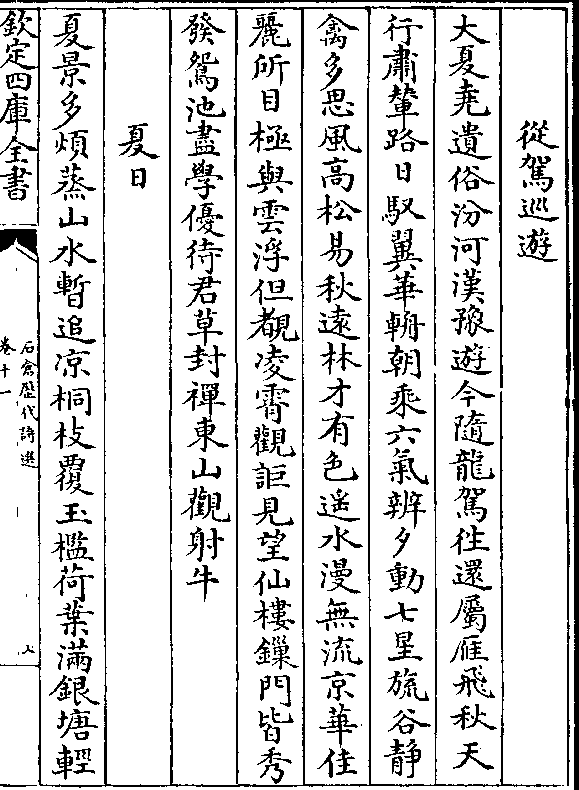 從駕巡遊
大夏堯遺俗汾河漢豫遊今隨龍駕往還屬雁飛秋天
行肅輦路日馭翼華輈朝乘六氣辨夕動七星旒谷静
禽多思風高松易秋遠林才有色遥水漫無流京華佳
麗所目極與雲浮但覩凌霄觀詎見望仙樓鏁門皆秀
發鴛池盡學優待君草封禪東山觀射牛
夏日
夏景多煩蒸山水暫追凉桐枝覆玉檻荷葉滿銀塘輕
欽定四庫全書
石倉歴代詩選
卷十一